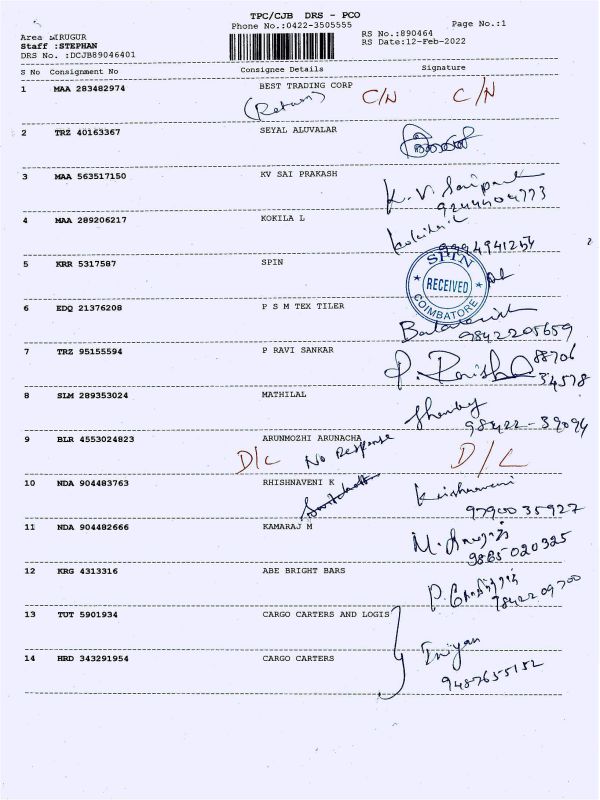 TPC/CJB DRS - PCO
Phone No.:0422-3505555
Page No.:1
Area :IRUGUR
Staff :STEPHAN
DRS No. :DCJB89046401
RS No.:890464
RS Date:12-Feb-2022
S No Consignment No Consignee Details Signature
1 MAA 283482974 BEST TRADING CORP
(Return) C/N C/N
2 TRZ 40163367 SEYAL ALUVALAR
3 MAA 563517150 KV SAI PRAKASH
K. V. Sai
4 MAA 289206217 KOKILA L
Kokila.L
9994941254
5 KRR 5317587 SPIN
SPIN
RECEIVED
COIMBATORE
6 EDQ 21376208 P S M TEX TILER
9842205659
7 TRZ 95155594 P RAVI SANKAR
P. Ravi 88706
34578
8 SLM 289353024 MATHILAL
98422-39094
9 BLR 4553024823 ARUNMOZHI ARUNACHA
D/L No Response D/L
10 NDA 904483763 RHISHNAVENI K
Krishnaveni
9790035927
11 NDA 904482666 KAMARAJ M
9865020325
12 KRG 4313316 ABE BRIGHT BARS
9842209700
13 TUT 5901934 CARGO CARTERS AND LOGIS
Iniyan
14 HRD 343291954 CARGO CARTERS
9487655152